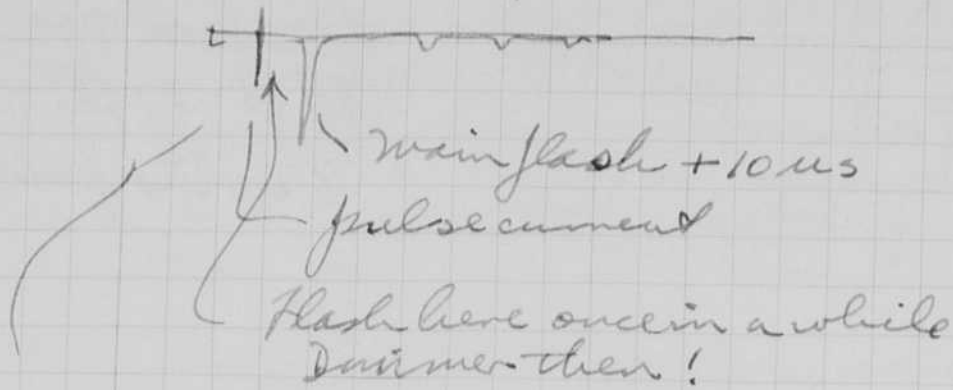 main flash + 10 us
pulse current
Flash here once in a while
Dimmer then!